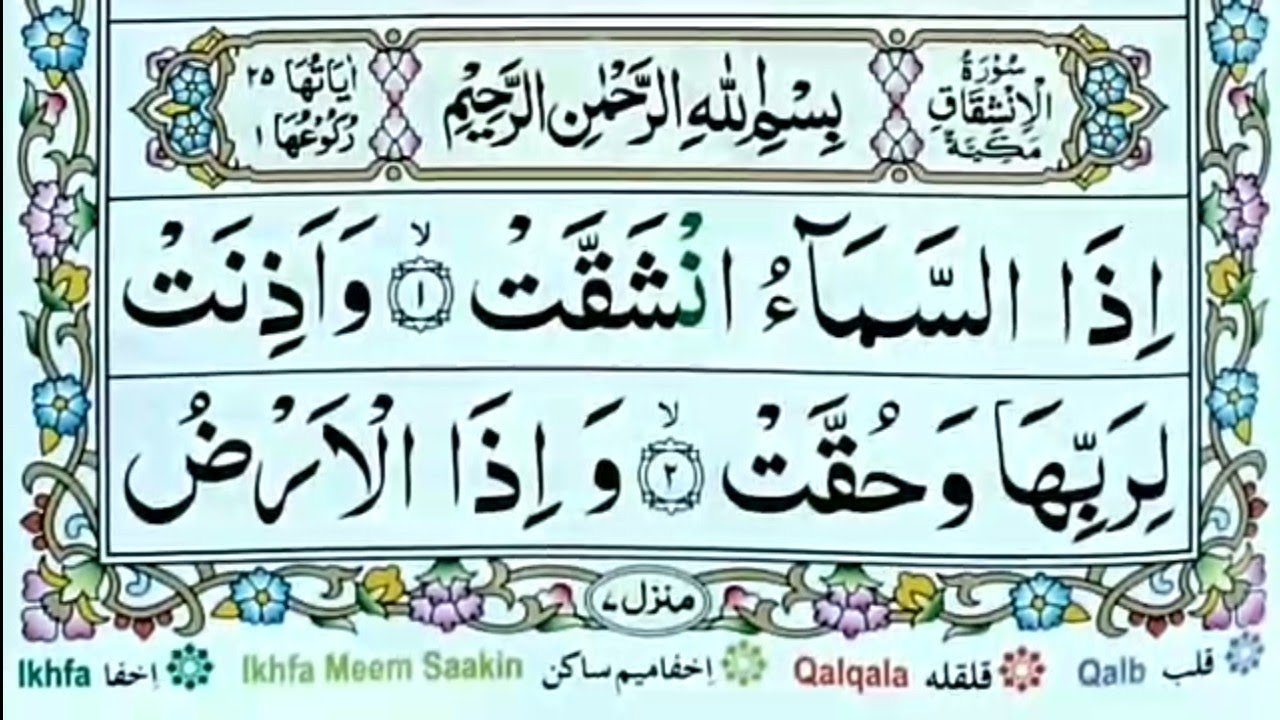 سُوْرَةُ الْاِنْشِقَاقِ مَكِّيَّةٌ
بِسْمِ اللّٰهِ الرَّحْمٰنِ الرَّحِيْمِ
اٰيَاتُهَا ٢٥ رُكُوْعُهَا ١
اِذَا السَّمَآءُ انْشَقَّتْ ۙ‏ ١ وَاَذِنَتْ
لِرَبِّهَا وَحُقَّتْ ۙ‏ ٢ وَ اِذَا الْاَرْضُ
منزل ٧
Ikhfa اِخفا Ikhfa Meem Saakin اِخفامیم ساکن Qalqala قلقله Qalb قلب